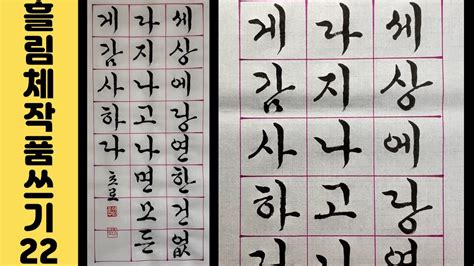 흘림체작품쓰기22
세상에당연한건없
다지나고나면모든
게감사하다
초로
세상에당
다지나고
게감사하